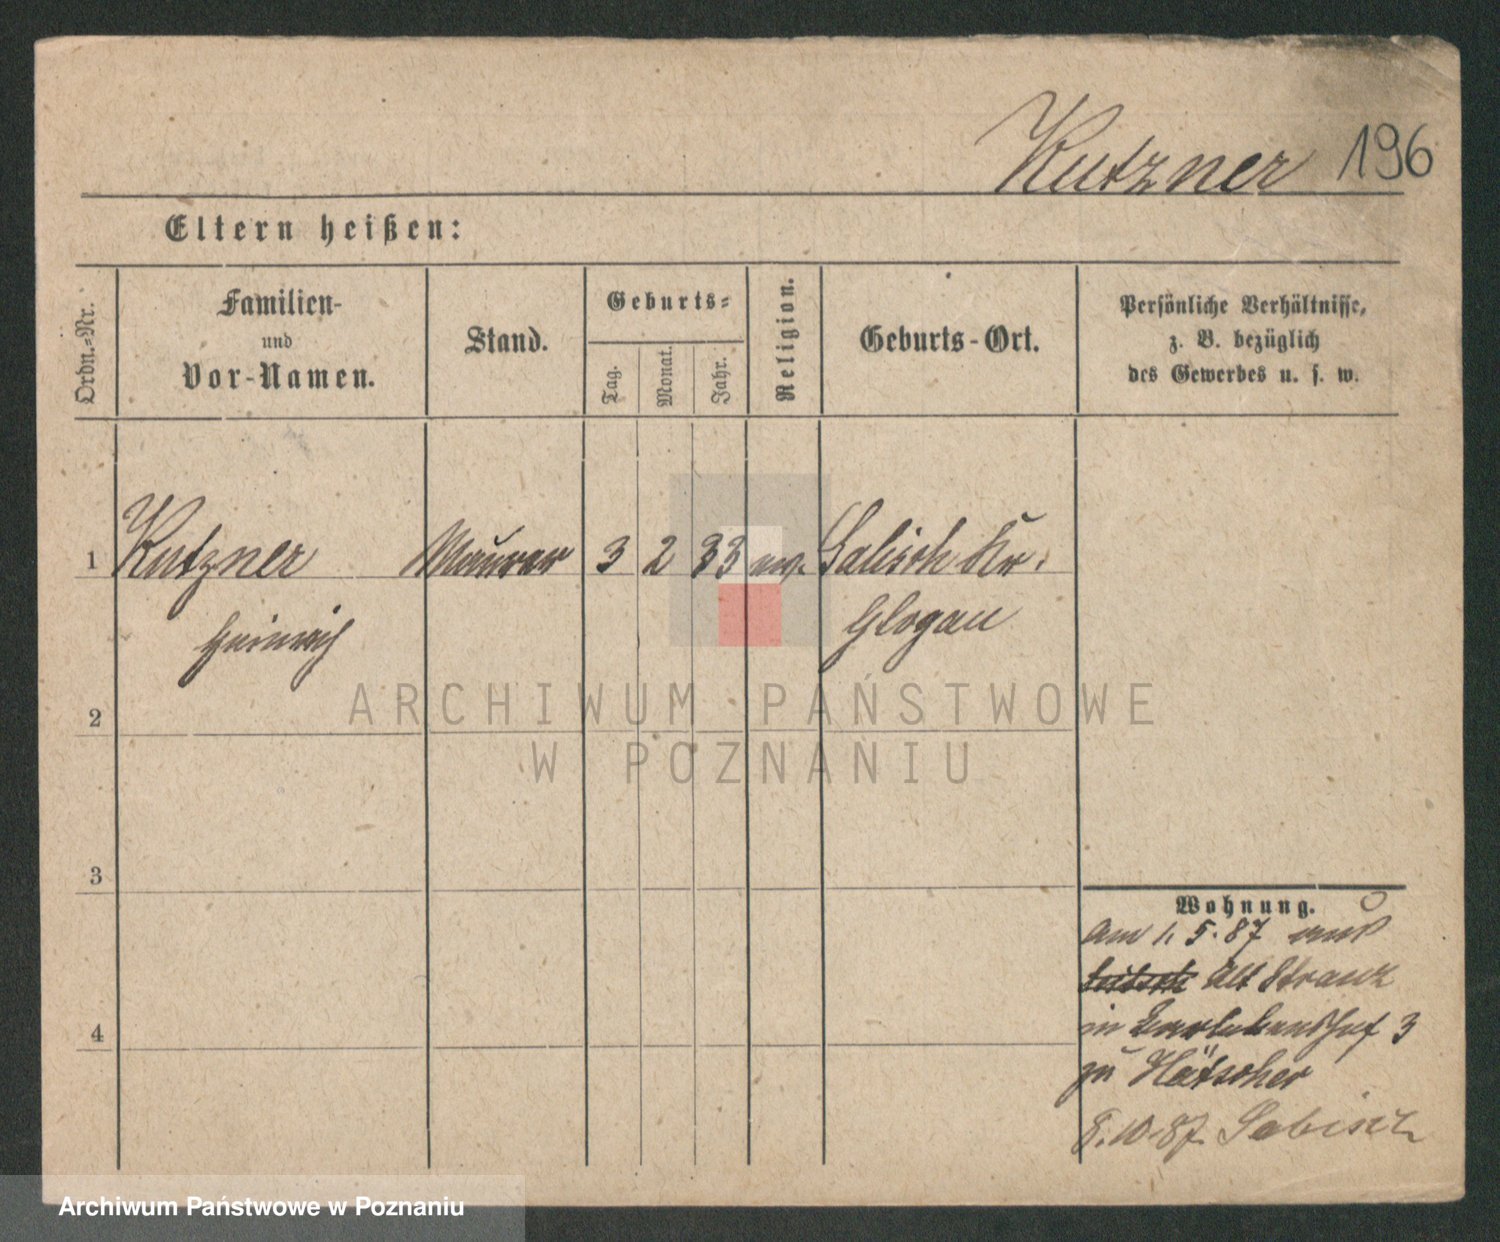 Kutzner 196
Eltern heißen:
Ordn.-Nr.
Familien-
und
Vor-Namen.
Stand.
Geburts-
Tag.
Monat.
Jahr.
Religion.
Geburts-Ort.
Persönliche Verhältnisse,
z. B. bezüglich
des Gewerbes u. s. w.
1 Kutzner Maurer 3 2 33 ev. Salisch Kr.
Heinrich Glogau
2
3
4
Wohnung.
Am 1. 5. 87 aus
Alt Stranz
in 3
zu Hätscher
8.10.87.
ARCHIWUM PAŃSTWOWE
W POZNANIU
Archiwum Państwowe w Poznaniu